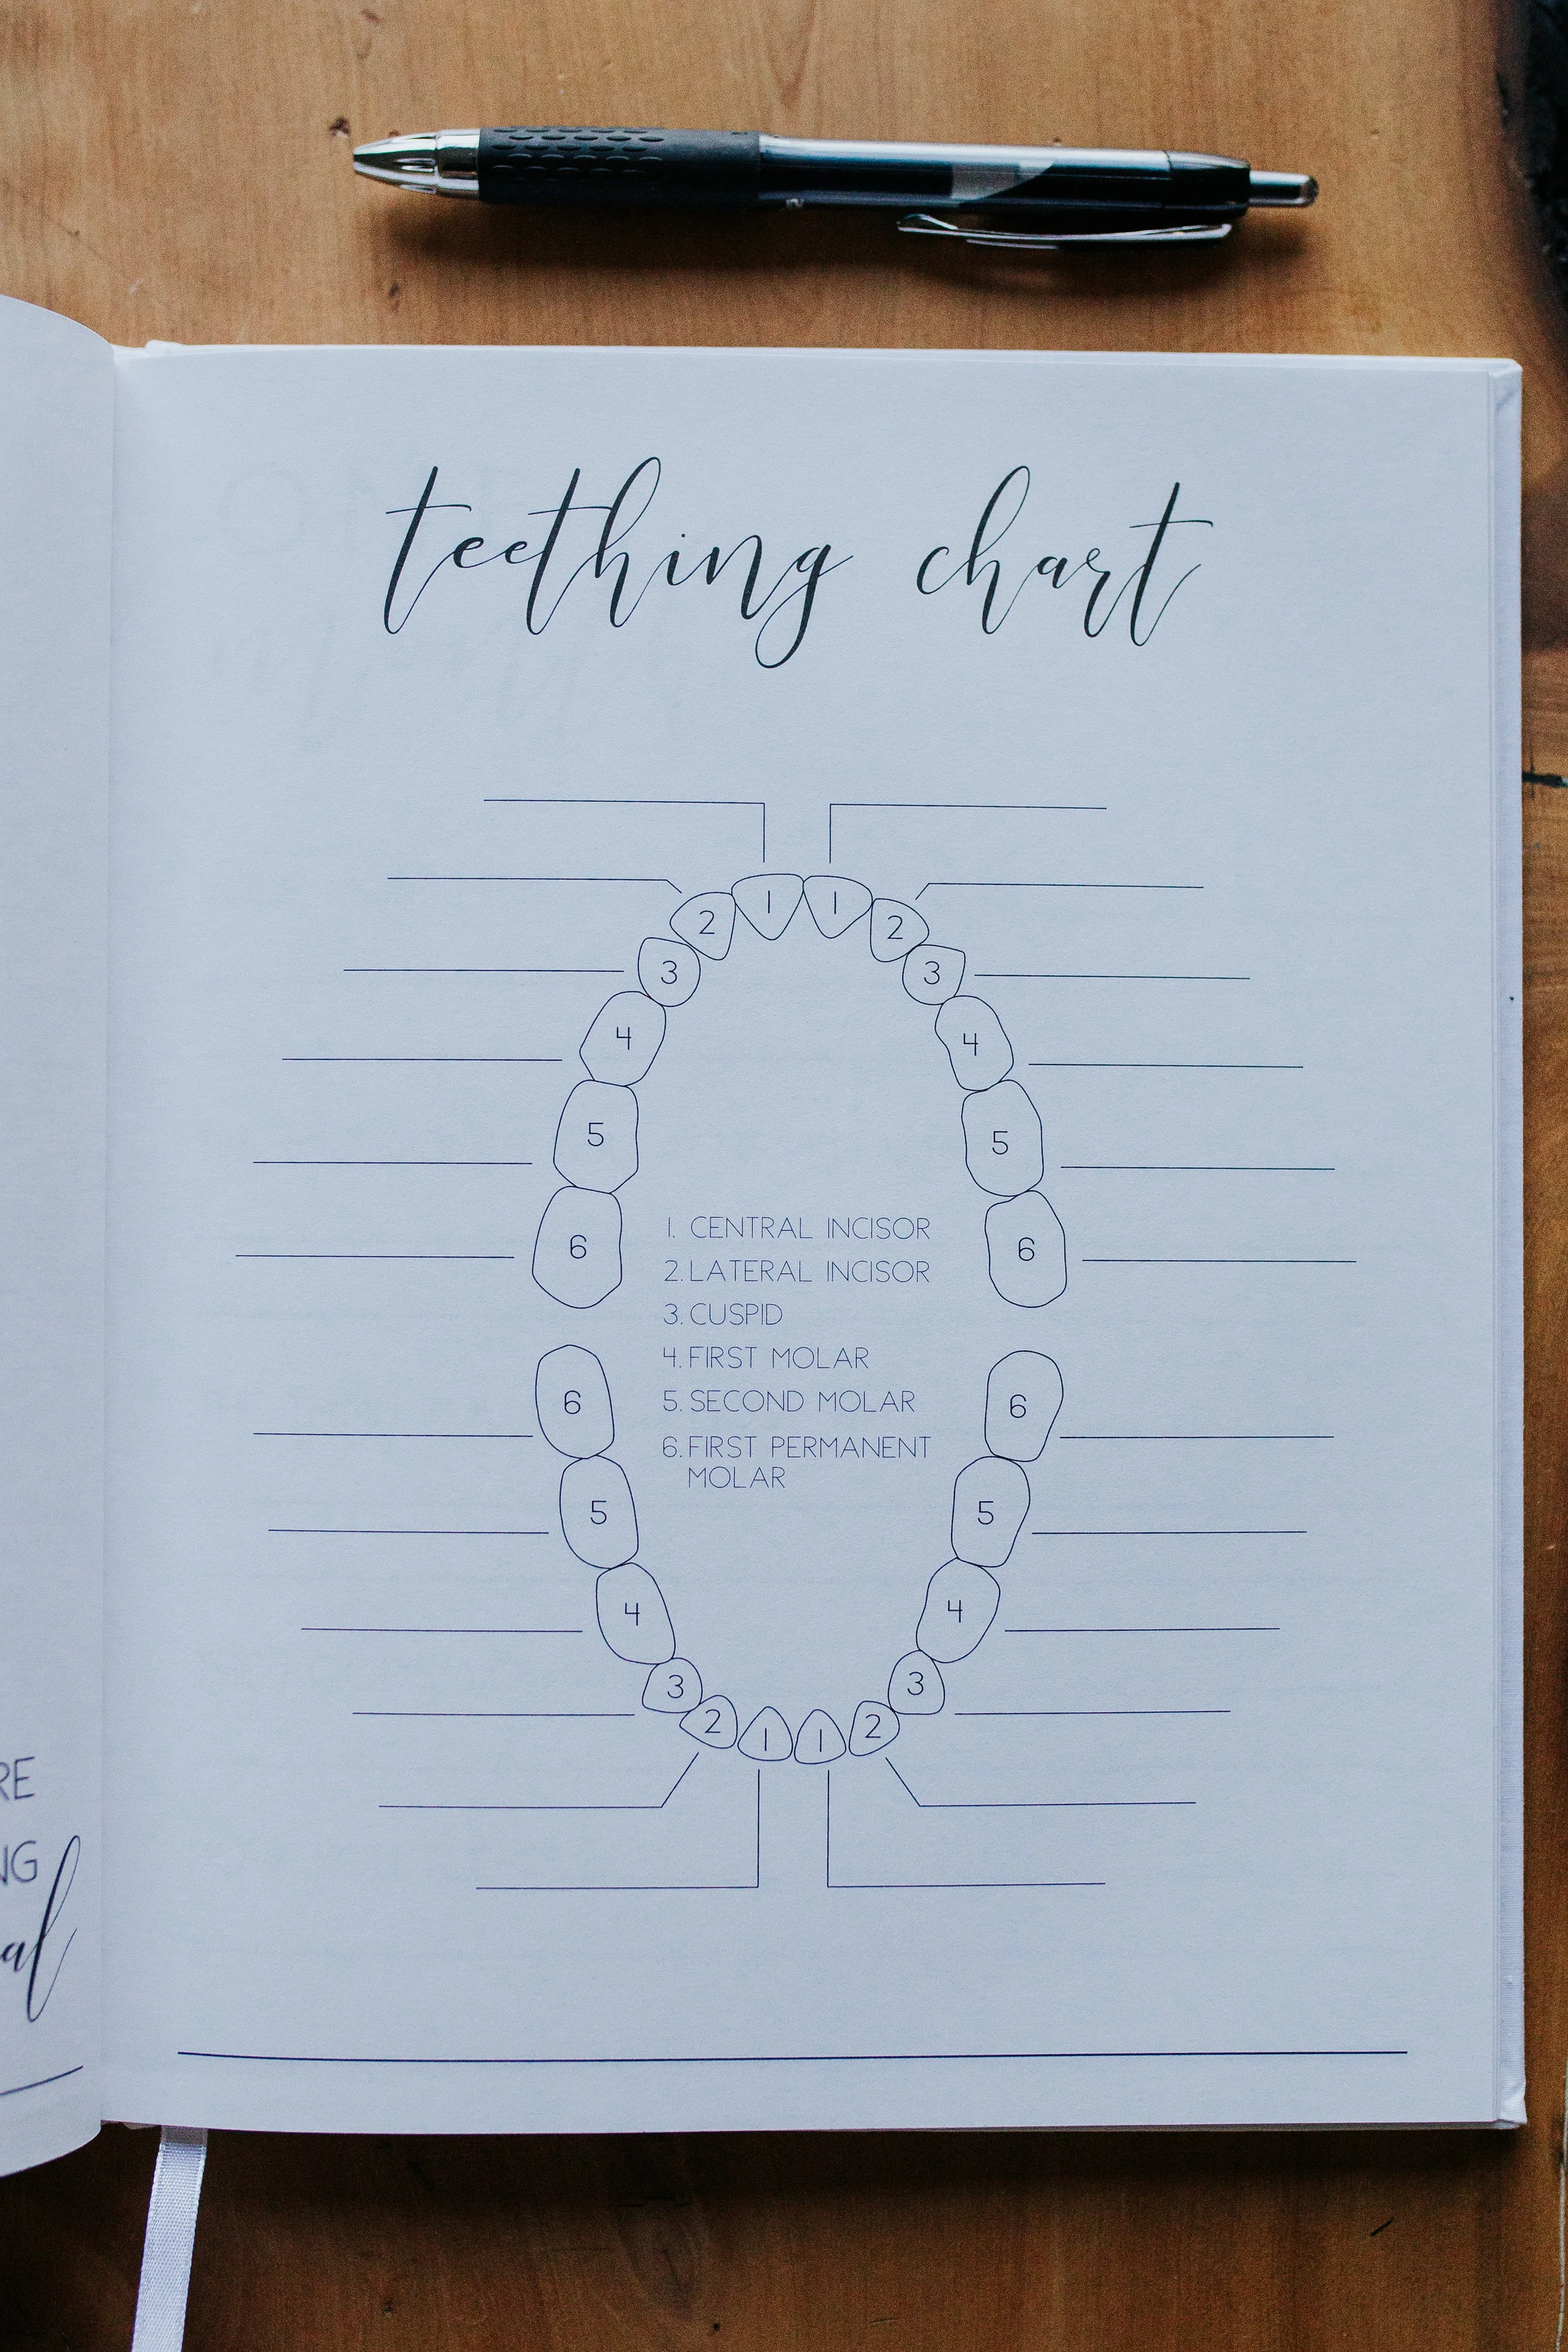 teething chart
1 1
2 2
3 3
4 4
5 5
6 6
1. CENTRAL INCISOR
2. LATERAL INCISOR
3. CUSPID
4. FIRST MOLAR
5. SECOND MOLAR
6. FIRST PERMANENT
MOLAR
6 6
5 5
4 4
3 3
2 1 1 2
RE
NG
al